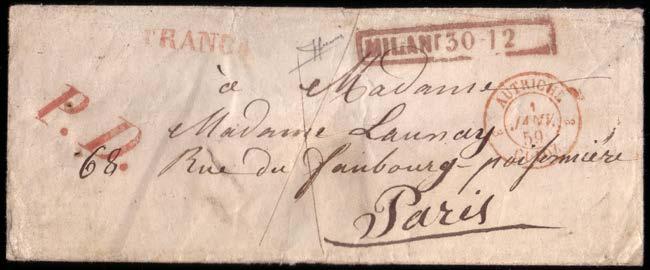 FRANCA
MILANO 30-12
P.D.
AUTRICHE
1
JANV.
59
à Madame
Madame Launay
68 Rue du faubourg-poissonnière
Paris